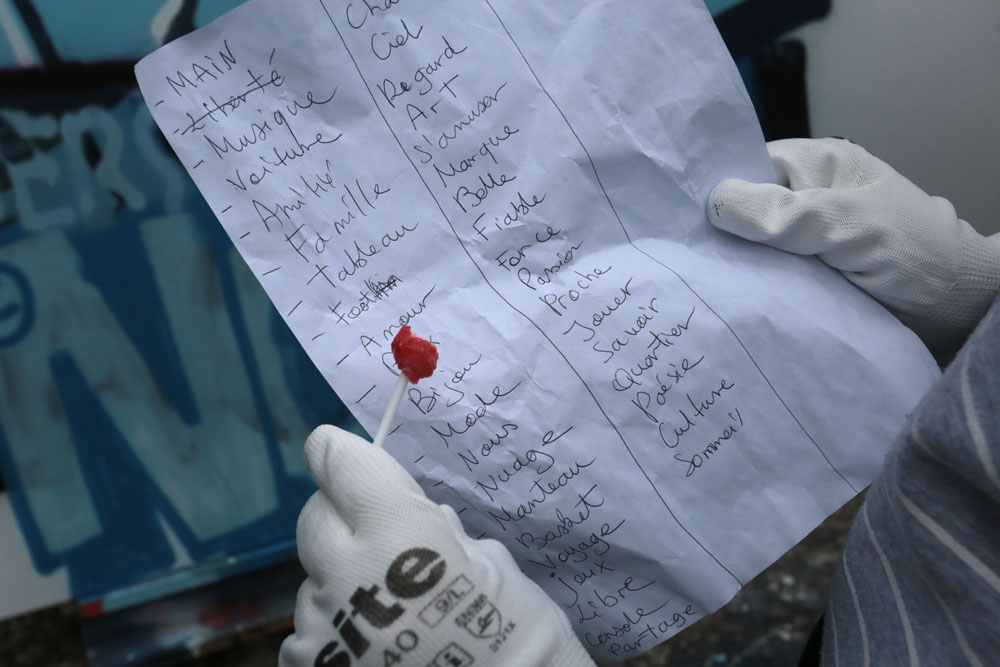 - MAIN
- Liberté
- Musique
- Voiture
- Amitié
- Famille
- Tableau
- Foot
- Amour
- Bijou
- Mode
- Nous
- Nudge
- Manteau
Basket
Voyage
Joux
Libre
Console
Partage
Ciel
Regard
Art
S'amuser
Marque
Belle
Fiable
Force
Passion
Proche
Jouer
Savoir
Quartier
Poésie
Culture
Sommeil
ERS
N
site
40
9/L